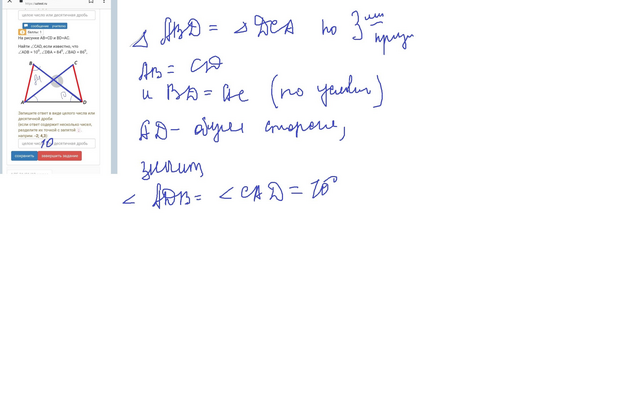 целое число или десятичная дробь
сообщение учителю
Баллы: 1
На рисунке AB=CD и BD=AC.
Найти ∠CAD, если известно, что
B
C
A
D
Запишите ответ в виде целого числа или
десятичной дроби
(если ответ содержит несколько чисел,
разделите их точкой с запятой
10
сохранить
завершить задание
△ ABD = △ DCA по 3
AB = CD
и BD = AC (по условию)
AD - общая сторона,
значит
∠ ADB = ∠ CAD = 10°